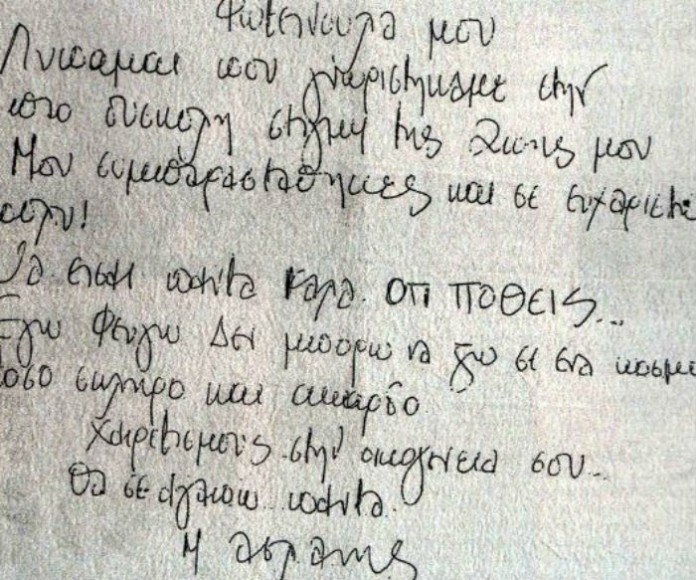 Φωτεινουλα μου
Λυπαμαι που γνωριστηκαμε στην
πιο δυσκολη στιγμη της ζωης μου
Μου συμπαρασταθηκες και σε ευχαριστω
πολυ!
Να εισαι παντα καλα. ΟΤΙ ΠΟΘΕΙΣ...
Εγω Φευγω Δεν μπορω να ζω σε ενα κοσμο
τοσο σκληρο και απαρδο
Χαιρετισμους στην οικογενεια σου..
Θα σε αγαπω παντα.